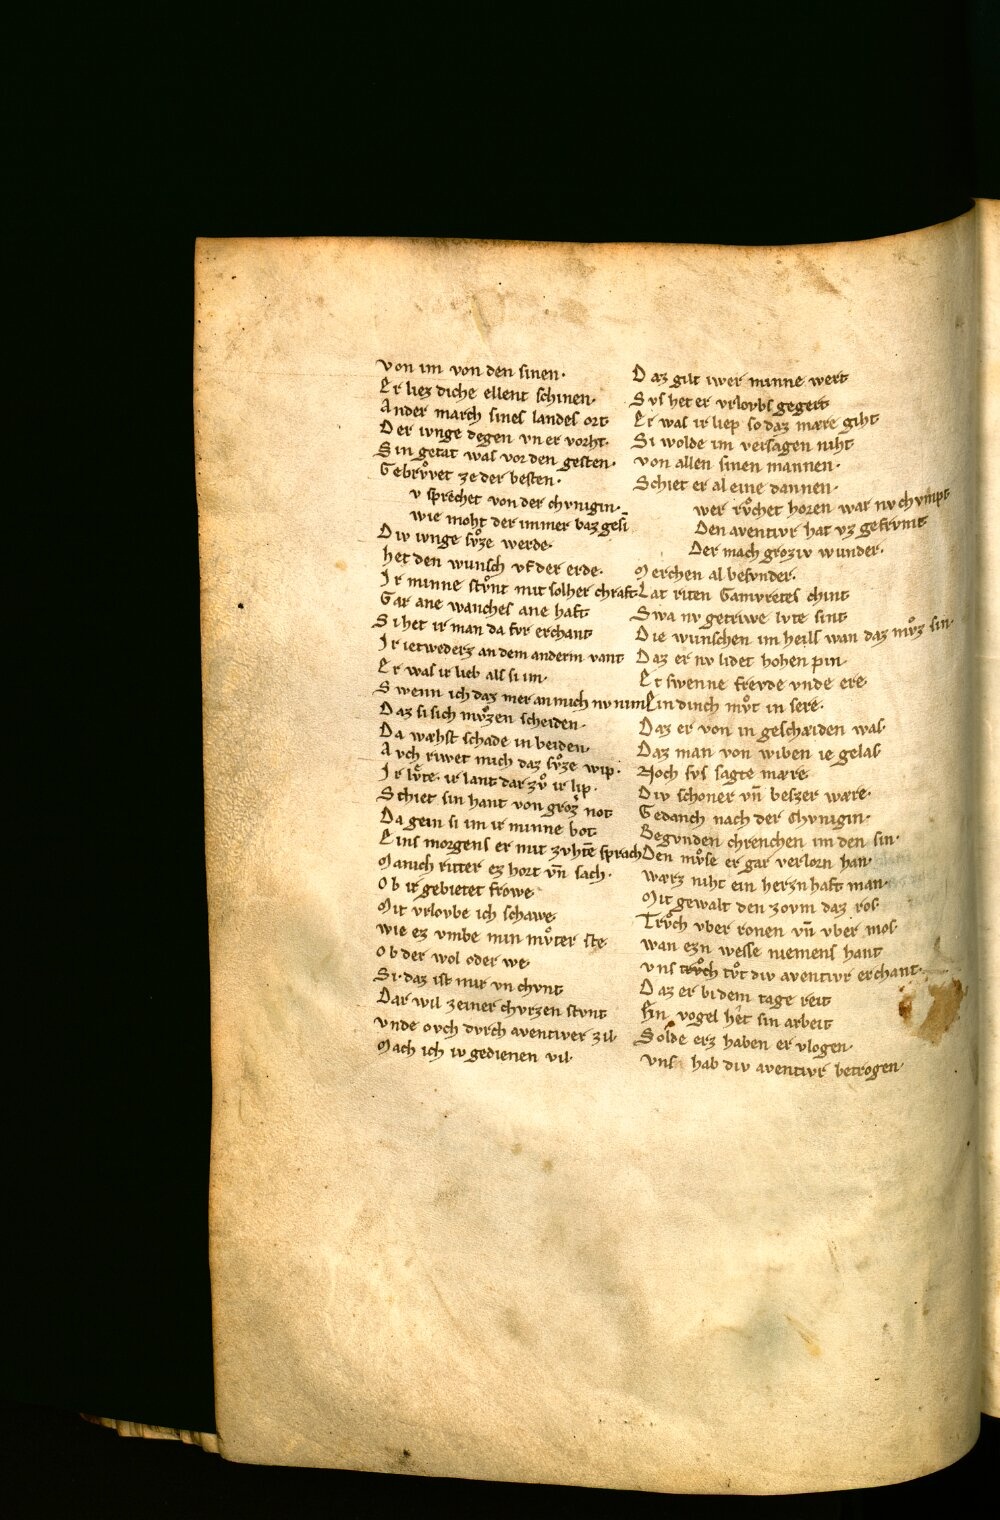 von im von den sinen·
Er liez diche ellent schinen·
Ander march sines landes ort
Der ivnge degen vn er vorht·
Sin getat was vor den gesten·
Gebrvͦvet ze der besten·
v sprechet von der chvnigin·
wie moht der immer baz gesi̅
Div ivnge svͦze werde·
het den wunsch vf der erde·
Ir minne stvͦnt mit solher chraft
Gar ane wanches ane haft
Si het ir man da fvr erchant
Ir ietweders an dem anderm vant
Er was ir lieb als si im·
Swenn ich daz mer an mich nv nim
Daz si sich mvͦzen scheiden·
Da wæhst schade in beiden·
Avch riwet mich daz svͦze wip·
Ir lvͤte· ir lant dar zvͦ ir lip·
Schiet sin hant von groz not
Da gein si im ir minne bot
Eins morgens er mit zvhte̅ sprach
Manich ritter ez hort vn̅ sach·
Ob ir gebietet frowe
Mit vrlovbe ich schawe
wie ez vmbe min mvͦter ste
Ob der wol oder we·
Si· daz ist mir vn chvnt
Dar wil zeiner chvrzen stvnt
vnde ovch dvrch aventiver zil·
Mach ich iv gedienen vil·
Daz gilt iwer minne wert
Svs het er vrlovbs gegert
Er was ir liep so daz mære giht
Si wolde im versagen niht
von allen sinen mannen·
Schiet er al eine dannen·
wer rvͦchet horen war nv chvmpt
Den aventivr hat vz gefrvmt
Der mach groziv wunder·
Merchen al besvnder·
Lat riten Gamvretes chint
Swa nv getriwe lvte sint
Die wunschen im heils wan daz mvͦz sin·
Daz er nv lidet hohen pin·
Et swenne frevde vnde ere
Ein dinch mvͦt in sere·
Daz er von in gescheiden was·
Daz man von wiben ie gelas
Noch svs sagte mære
Div schoner vn̅ beszer wære·
Gedanch nach der chvnigin·
Begvnden chrenchen im den sin·
Den mvͦse er gar verlorn han·
wærz niht ein herzn haft man·
Mit gewalt den zovm daz ros·
Trvͦch vber ronen vn̅ vber mos·
wan ezn wesse niemens hant
vns trvͦch tvͦt div aventivr erchant·
Daz er bi dem tage reit
Ein vogel het sin arbeit
Solde erz haben er vlogen·
vns hab div aventivr betrogen·